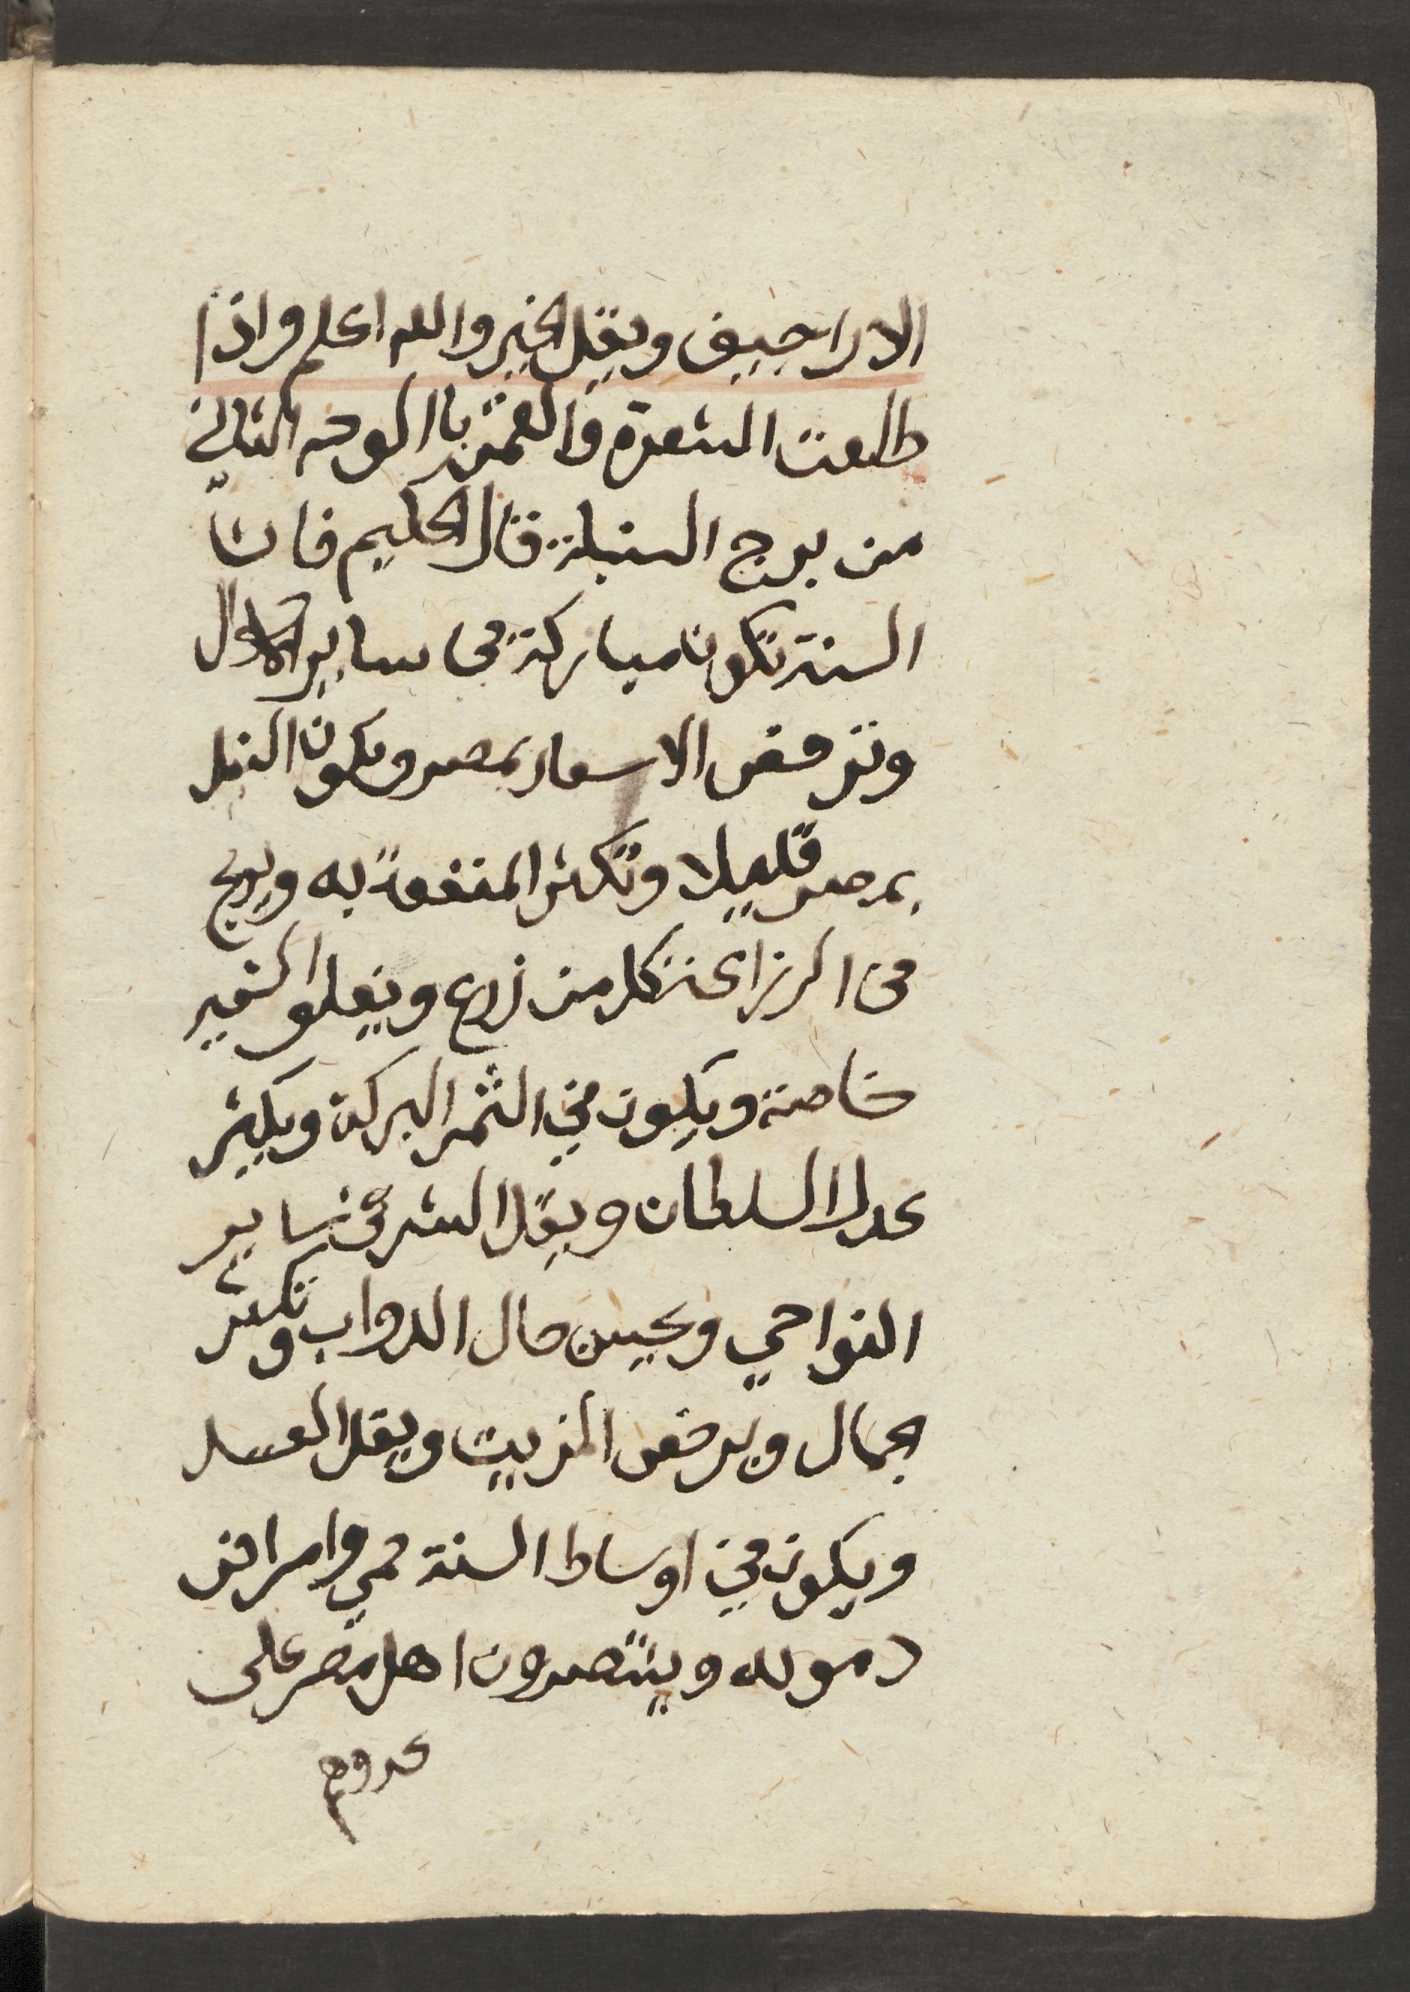 الاراجيف ويقل الخير والله اعلم واذا
طلعت الشعرة والقمر باالوجه الثاني
من برج السنبلة قال الحكيم فان
السنة تكون مباركة في ساير الاحوال
وترخص الاسعار بمصر ويكون النيل
بمصر قليلا وتكثر المنفعة به ويربح
في الزراعة كل من زرع ويغلوا الشعير
خاصة ويكون في الثمر البركة ويكثر
عدل السلطان ويقل الشر في ساير
النواحي ويحسن حال الدواب وتكثر
الجمال ويرخص الزيت ويقل العسل
ويكون في اوساط السنة حمي وامراض
دمويه وينتصرون اهل مصر على
عدوهم